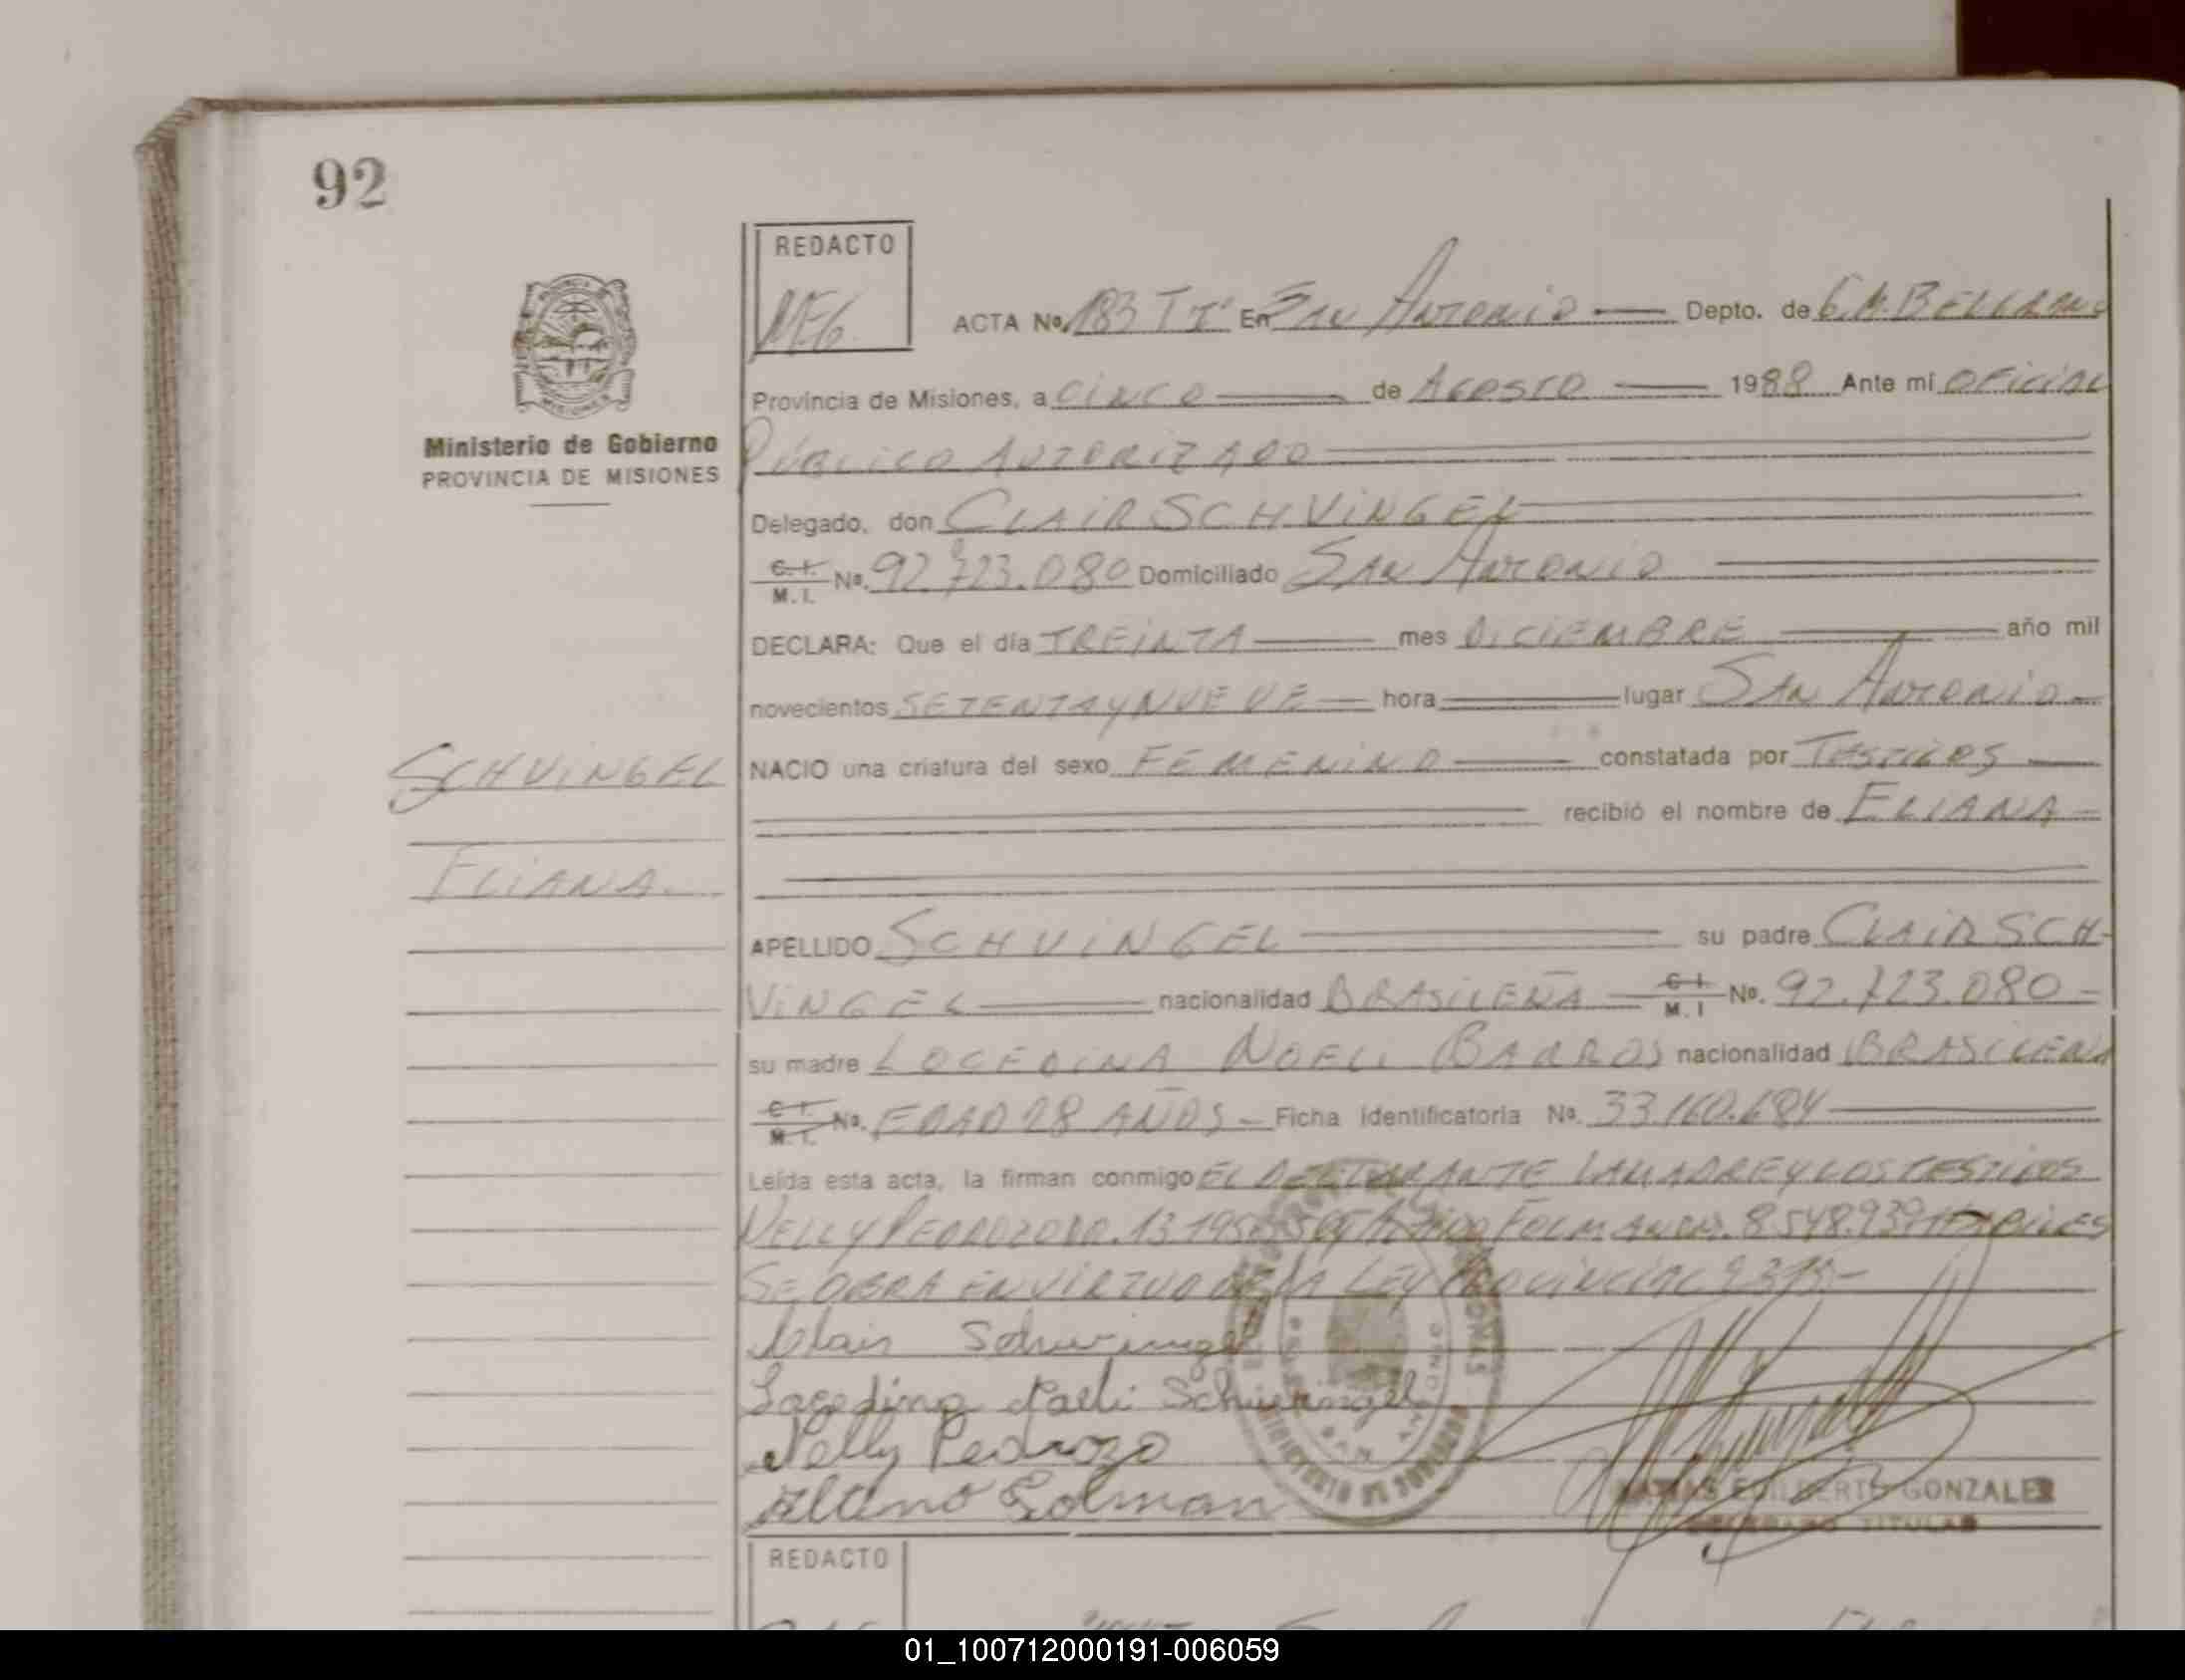 92
REDACTO
MEG.
ACTA No. 183 T I° En SAN ANTONIO Depto. de G.M. BELGRANO
Provincia de Misiones, a CINCO de AGOSTO 1988 Ante mí OFICIAL
PÚBLICO AUTORIZADO
Ministerio de Gobierno
PROVINCIA DE MISIONES
Delegado, don CLAIR SCHVINGEL
C. I. M. I. No. 92.723.080 Domiciliado SAN ANTONIO
DECLARA: Que el día TREINTA mes DICIEMBRE año mil
novecientos SETENTA Y NUEVE hora lugar SAN ANTONIO
SCHVINGEL
NACIO una criatura del sexo FEMENINO constatada por TESTIGOS
recibió el nombre de ELIANA
ELIANA.
APELLIDO SCHVINGEL su padre CLAIR SCH-
VINGEL nacionalidad BRASILEÑA C I M. I No. 92.723.080
su madre LOCEDINA NOELI BARROS nacionalidad BRASILEÑA
C I. M. I. No. EDAD 28 AÑOS Ficha Identificatoria No. 33.160.684
Leída esta acta, la firman conmigo EL DECLARANTE LA MADRE Y LOS TESTIGOS
NELLY PEDROZO DNI. 13.195. FOLMAN DNI. 8.548.939 HABILES
SE OBRA EN VIRTUD DE LA LEY PROVINCIAL
Clair Schwingel
Locedina Noeli Schwingel
Nelly Pedrozo
Folman
MATIAS EDILBERTO GONZALEZ
TITULAR
REDACTO
01_100712000191-006059